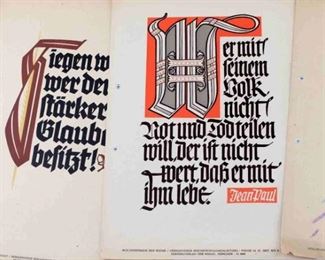 Siegen w
wer den
stärker
Glaube
besitzt!
Wer mit
seinem
Volk
nicht
Not und Tod teilen
will, der ist nicht
wert, daß er mit
ihm lebe.
Jean Paul